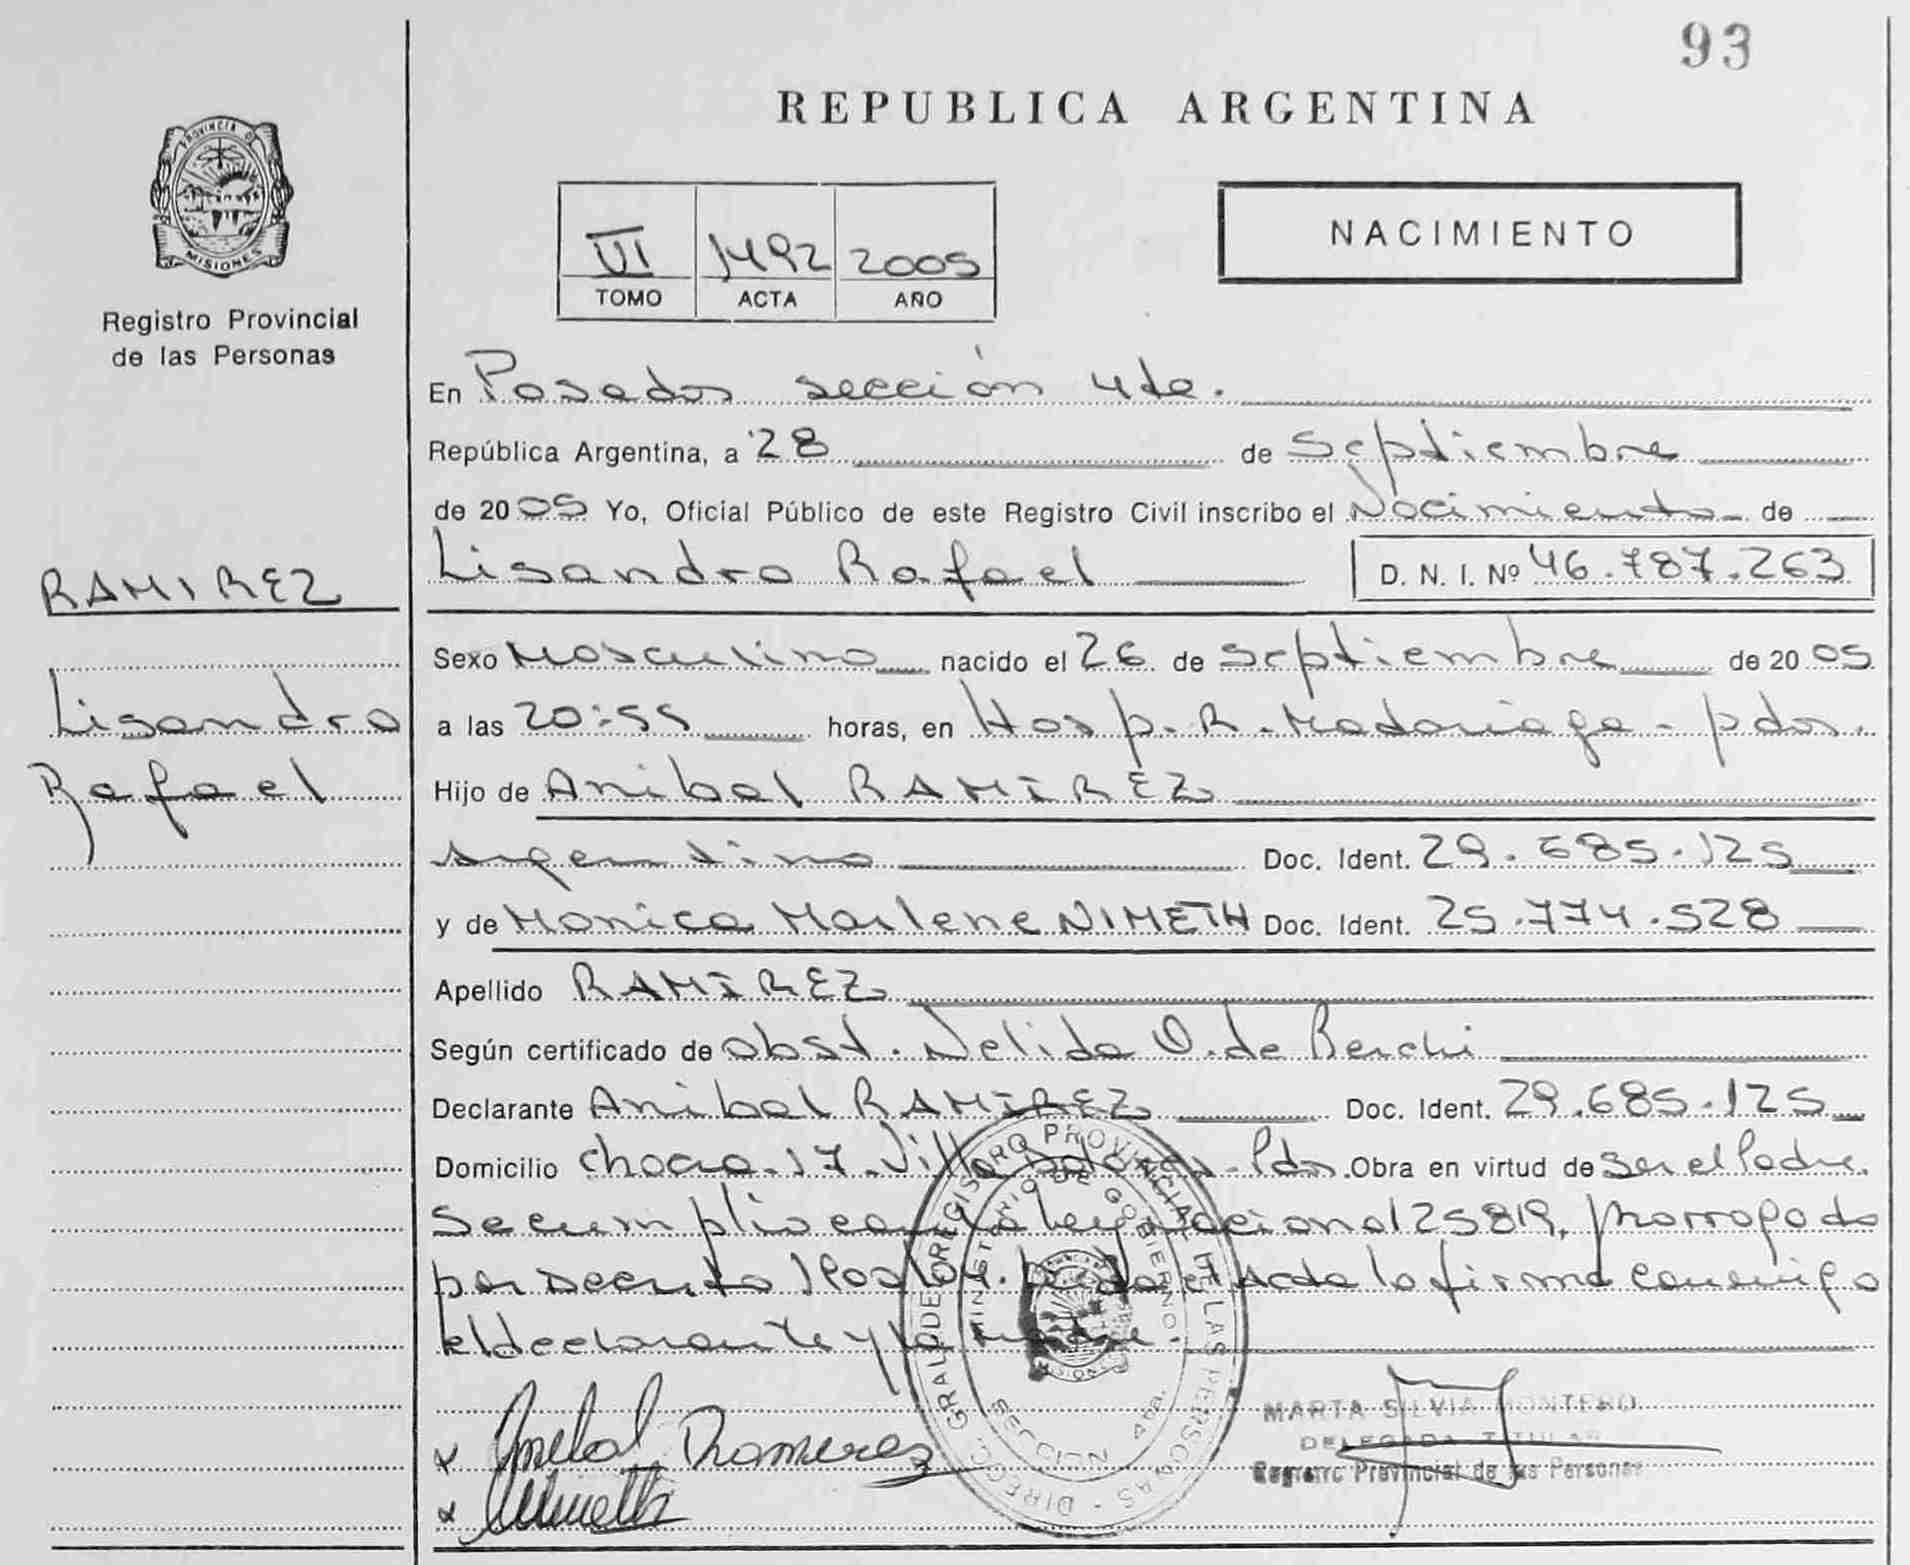 93
REPUBLICA ARGENTINA
PROVINCIA DE
MISIONES
Registro Provincial
de las Personas
VI 1492 2005
TOMO ACTA AÑO
NACIMIENTO
En Posadas sección 4ta.
República Argentina, a 28 de septiembre
de 2005 Yo, Oficial Público de este Registro Civil inscribo el Nacimiento de
Lisandro Rafael D. N. I. Nº 46.787.263
RAMIREZ
Lisandro
Rafael
Sexo Masculino nacido el 26 de septiembre de 2005
a las 20:55 horas, en Hosp. R. Madariaga - pdas.
Hijo de Anibal RAMIREZ
argentino Doc. Ident. 29.685.125
y de Monica Marlene NIMETH Doc. Ident. 25.774.528
Apellido RAMIREZ
Según certificado de obst. Nelida O. de Berchi
Declarante Anibal RAMIREZ Doc. Ident. 29.685.125
Domicilio chacra 17 - Villa - Pdas. Obra en virtud de ser el Padre.
Se cumplio con la ley nacional 25819, prorrogado
por Decreto el Acta la firma conmigo
el declarante y la madre.
x Anibal Ramirez
x Nimeth
DIRECC. GRAL DE REGISTRO PROVINCIAL DE LAS PERSONAS
MINISTERIO DE GOBIERNO
MARTA SILVIA MONTERO
DELEGADA TITULAR
Registro Provincial de las Personas